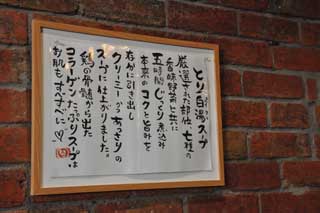 とり白湯スープ
厳選された部位 七種の
香味野菜と共に
五時間じっくり煮込み
本来のコクと旨みを
存分に引き出し
クリーミーかつあっさりの
スープに仕上がりました。
鶏の骨髄から出た
コラーゲンたっぷりスープは
お肌もすべすべに♡